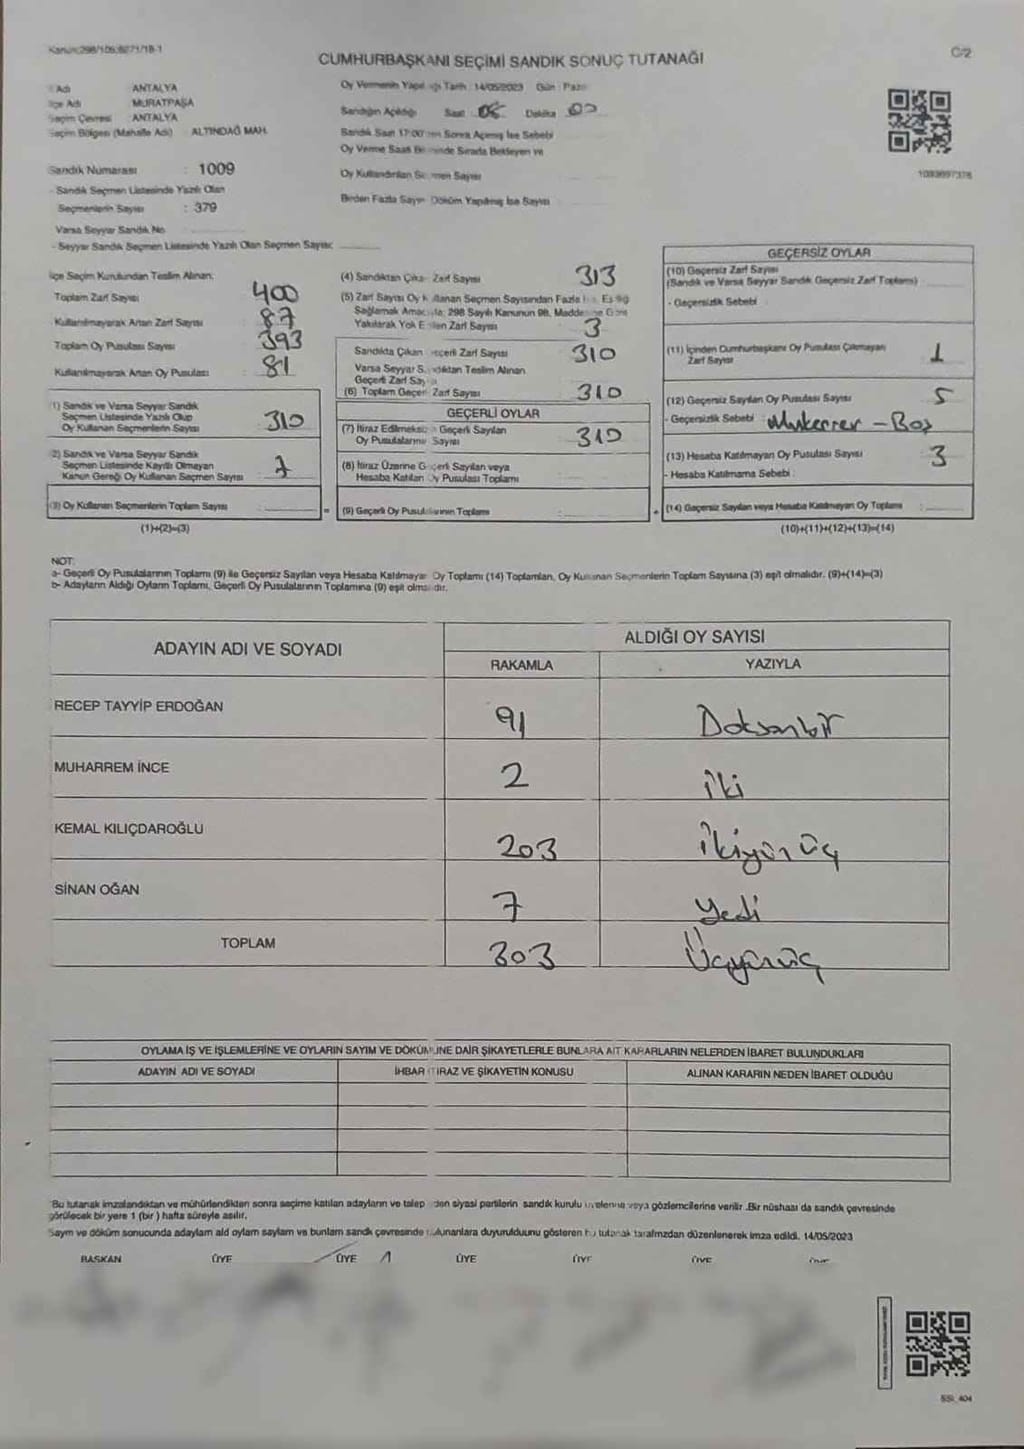 Kanun:298/105;6271/18-1
C/2
CUMHURBAŞKANI SEÇİMİ SANDIK SONUÇ TUTANAĞI
Adı ANTALYA
İlçe Adı MURATPAŞA
Seçim Çevresi ANTALYA
Seçim Bölgesi (Mahalle Adı) : ALTINDAĞ MAH.
Sandık Numarası : 1009
- Sandık Seçmen Listesinde Yazılı Olan
Seçmenlerin Sayısı : 379
Varsa Seyyar Sandık No
- Seyyar Sandık Seçmen Listesinde Yazılı Olan Seçmen Sayısı:
Oy Vermenin Yapıldığı Tarih : 14/05/2023 Gün : Pazar
Sandığın Açıldığı Saat Dakika
Sandık Saat 17:00'den Sonra Açılmış İse Sebebi
Oy Verme Saati Bitiminde Sırada Bekleyen ve
Oy Kullandırılan Seçmen Sayısı
Birden Fazla Sayım Döküm Yapılmış İse Sayısı
1093697378
İlçe Seçim Kurulundan Teslim Alınan;
Toplam Zarf Sayısı 400
Kullanılmayarak Artan Zarf Sayısı 87
Toplam Oy Pusulası Sayısı 393
Kullanılmayarak Artan Oy Pusulası 81
(1) Sandık ve Varsa Seyyar Sandık
Seçmen Listesinde Yazılı Olup
Oy Kullanan Seçmenlerin Sayısı 310
(2) Sandık ve Varsa Seyyar Sandık
Seçmen Listesinde Kayıtlı Olmayan
Kanun Gereği Oy Kullanan Seçmen Sayısı
(3) Oy Kullanan Seçmenlerin Toplam Sayısı : =
(1)+(2)=(3)
(4) Sandıktan Çıkan Zarf Sayısı 313
(5) Zarf Sayısı Oy Kullanan Seçmen Sayısından Fazla İse, Eşitliği
Sağlamak Amacıyla; 298 Sayılı Kanunun 98. Maddesine Göre
Yakılarak Yok Edilen Zarf Sayısı 3
Sandıkta Çıkan Geçerli Zarf Sayısı 310
Varsa Seyyar Sandıktan Teslim Alınan
Geçerli Zarf Sayısı
(6) Toplam Geçerli Zarf Sayısı 310
GEÇERLİ OYLAR
(7) İtiraz Edilmeksizin Geçerli Sayılan
Oy Pusulalarının Sayısı 310
(8) İtiraz Üzerine Geçerli Sayılan veya
Hesaba Katılan Oy Pusulası Toplamı
(9) Geçerli Oy Pusulalarının Toplamı +
GEÇERSİZ OYLAR
(10) Geçersiz Zarf Sayısı
(Sandık ve Varsa Seyyar Sandık Geçersiz Zarf Toplamı)
- Geçersizlik Sebebi
(11) İçinden Cumhurbaşkanı Oy Pusulası Çıkmayan
Zarf Sayısı 1
(12) Geçersiz Sayılan Oy Pusulası Sayısı 5
- Geçersizlik Sebebi : Mukerrer - Boş
(13) Hesaba Katılmayan Oy Pusulası Sayısı 3
- Hesaba Katılmama Sebebi :
(14) Geçersiz Sayılan veya Hesaba Katılmayan Oy Toplamı :
(10)+(11)+(12)+(13)=(14)
NOT:
a- Geçerli Oy Pusulalarının Toplamı (9) ile Geçersiz Sayılan veya Hesaba Katılmayan Oy Toplamı (14) Toplamları, Oy Kullanan Seçmenlerin Toplam Sayısına (3) eşit olmalıdır. (9)+(14)=(3)
b- Adayların Aldığı Oyların Toplamı, Geçerli Oy Pusulalarının Toplamına (9) eşit olmalıdır.
ADAYIN ADI VE SOYADI ALDIĞI OY SAYISI
RAKAMLA YAZIYLA
RECEP TAYYİP ERDOĞAN 91 Doksanbir
MUHARREM İNCE 2 iki
KEMAL KILIÇDAROĞLU 203 ikiyüz üç
SİNAN OĞAN 7 Yedi
TOPLAM 303 Üçyüzüç
OYLAMA İŞ VE İŞLEMLERİNE VE OYLARIN SAYIM VE DÖKÜMÜNE DAİR ŞİKAYETLERLE BUNLARA AİT KARARLARIN NELERDEN İBARET BULUNDUKLARI
ADAYIN ADI VE SOYADI İHBAR İTİRAZ VE ŞİKAYETİN KONUSU ALINAN KARARIN NEDEN İBARET OLDUĞU
Bu tutanak imzalandıktan ve mühürlendikten sonra seçime katılan adayların ve talep eden siyasi partilerin sandık kurulu üyelerine veya gözlemcilerine verilir .Bir nüshası da sandık çevresinde
görülecek bir yere 1 (bir ) hafta süreyle asılır.
Sayım ve döküm sonucunda adayların ald oyların sayıları ve bunların sandık çevresinde bulunanlara duyurulduunu gösteren bu tutanak tarafımızdan düzenlenerek imza edildi. 14/05/2023
BAŞKAN ÜYE ÜYE ÜYE ÜYE ÜYE ÜYE
SSI_404